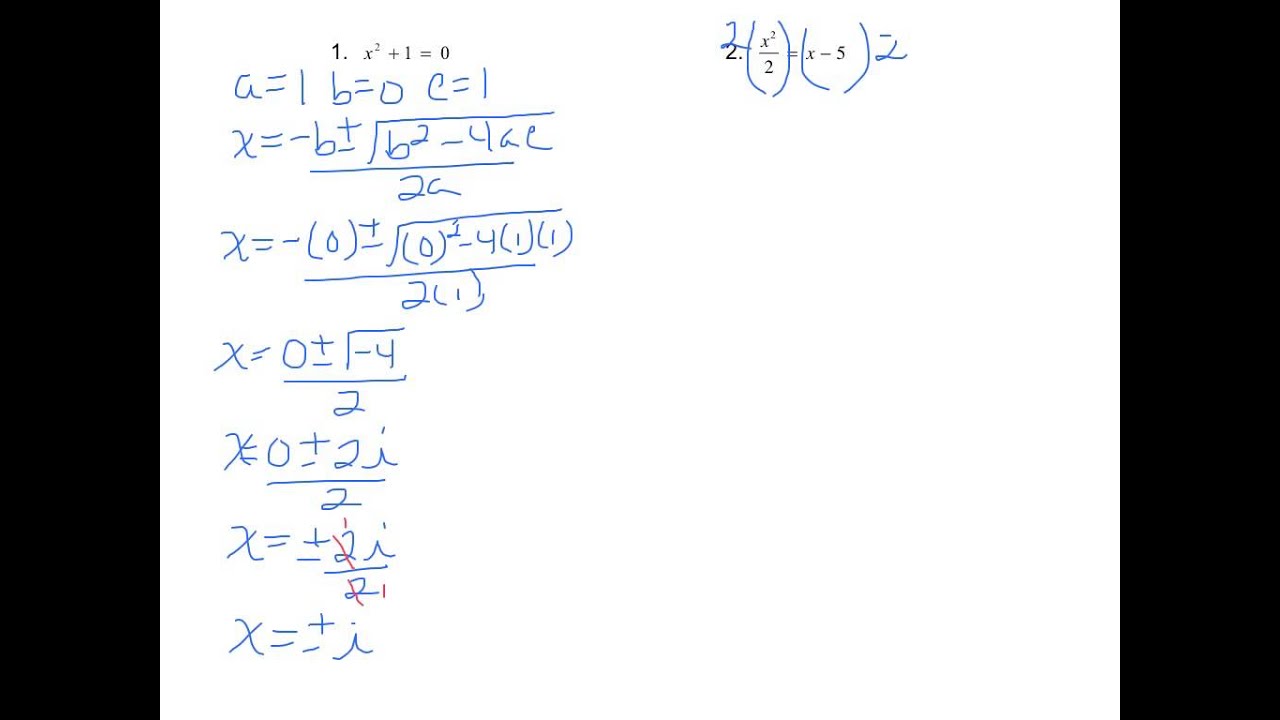 1. x² + 1 = 0
a=1 b=0 c=1
x = -b ± √(b² - 4ac)
2a
x = -(0) ± √((0)² - 4(1)(1))
2(1)
x = 0 ± √-4
2
x = 0 ± 2i
2
x = ± 2i 1
2 1
x = ± i
2. 2(x²/2) = (x - 5)2